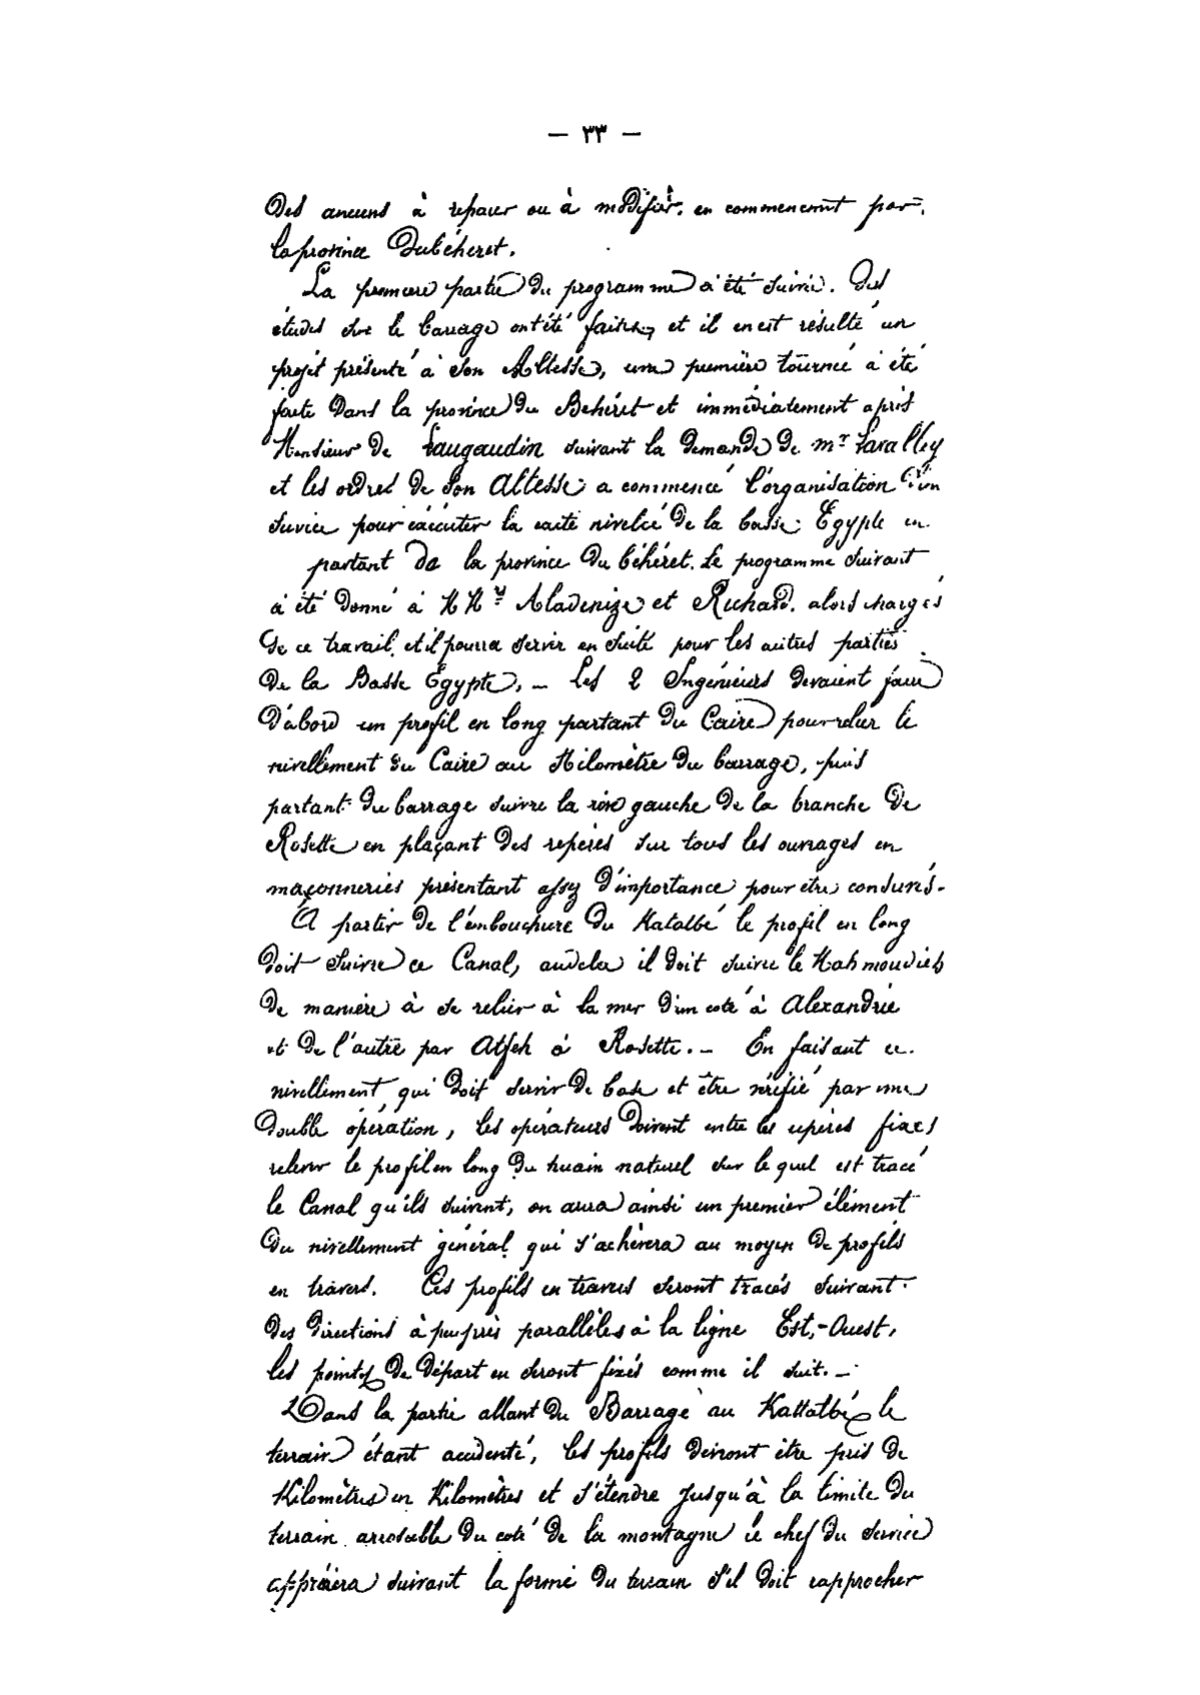 — ٣٣ —
des anciens à reparer ou à modifier. en commencant par.
la province du béheret.
La premiere partie du programme a été suivie. Des
études sur le barrage ont été faites, et il en est résulté un
projet présenté à Son Altesse, une première tournée a été
faite dans la province du Behéret et immédiatement après
Monsieur de Vaugaudin suivant la demande de mr Lavalley
et les ordres de Son Altesse a commencé l'organisation d'un
Service pour éxécuter la carte nivelée de la basse Egypte en
partant de la province du béhéret. Le programme suivant
a été donné à MMrs Aladenize et Richard. alors chargés
de ce travail. et il pourra servir en suite pour les autres parties
de la Basse Egypte, — Les 2 Ingénieurs devaient faire
d'abord un profil en long partant du Caire pour relier le
nivellement du Caire au Kilomètre du barrage, puis
partant du barrage suivre la rive gauche de la branche de
Rosette en plaçant des repères sur tous les ouvrages en
maçonneries présentant assez d'importance pour être conservés.
A partir de l'embouchure du Katatbé le profil en long
doit suivre ce Canal, au delà il doit suivre le Mahmoudieh
de manière à se relier à la mer d'un coté à Alexandrie
et de l'autre par Atfeh à Rosette. — En faisant ce
nivellement qui doit servir de base et être vérifié par une
double opération, les opérateurs doivent entre les repères fixes
relever le profil en long du terrain naturel sur lequel est tracé
le Canal qu'ils suivent, on aura ainsi un premier élément
du nivellement général qui s'achèvera au moyen de profils
en travers. Ces profils en travers seront tracés suivant
des directions à peu près parallèles à la ligne Est,-Ouest,
les points de départ en seront fixés comme il suit. —
Dans la partie allant du Barrage au Kattatbé le
terrain étant accidenté, les profils devront être pris de
Kilomètres en Kilomètres et s'étendre jusqu'à la limite du
terrain arrosable du coté de la montagne le chef du service
appréciera suivant la forme du terrain s'il doit rapprocher